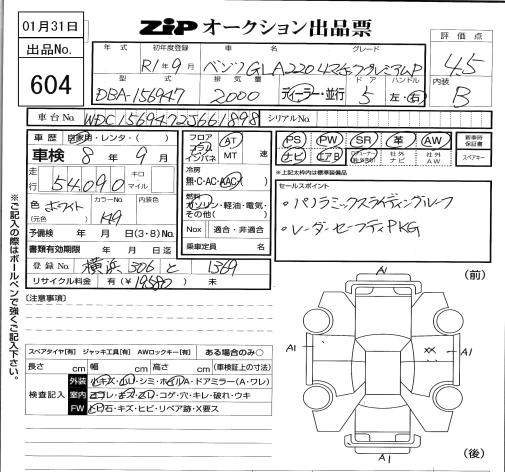 01月31日
出品No.
604
ZiP オークション出品票
評価点
4.5
内装
B
年式 初年度登録 車名 グレード
R1年9月 ベンツGLA220 4マチックプレミアムP
型式 排気量 ドア ハンドル
DBA-156947 2000 ディーラー・並行 5 左・右
車台No. WDC1569472J661898 シリアルNo.
車歴 自家用・レンタ・( )
車検 8年9月
走行 54,090 キロ マイル
色 ホワイト カラーNo. 149 内装色
(元色)
予備検 年 月 日(3・8)No.
書類有効期限 年 月 日迄
登録No. 横浜 306 と 1369
リサイクル料金 有(¥19580) 未
フロア コラム インパネ AT MT 速
冷房
無・C・AC・AAC
燃料
ガソリン・軽油・電気・その他( )
Nox 適合・非適合
乗車定員 名
PS PW SR 革 AW 新車時保証書
ナビ エアB 社外ナビ 社外AW スペアキー
*上記太枠内は標準装備品
セールスポイント
・パノラミックスライディングルーフ
・レーダーセーフティPKG
[注意事項]
スペアタイヤ[有] ジャッキ工具[有] AWロックキー[有] ある場合のみ○
長さ cm 幅 cm 高さ cm (車検証上の寸法)
検査記入
外装 小キズ・凹・シミ・ホイルA・ドアミラー(A・ワレ)
室内 ヨゴレ・キズ・スレ・コゲ・穴・キレ・破れ・ウキ
FW 飛石・キズ・ヒビ・リペア跡・X要ス
※ご記入の際はボールペンで強くご記入下さい。
(前)
A1
A1
××
A1
A1
(後)